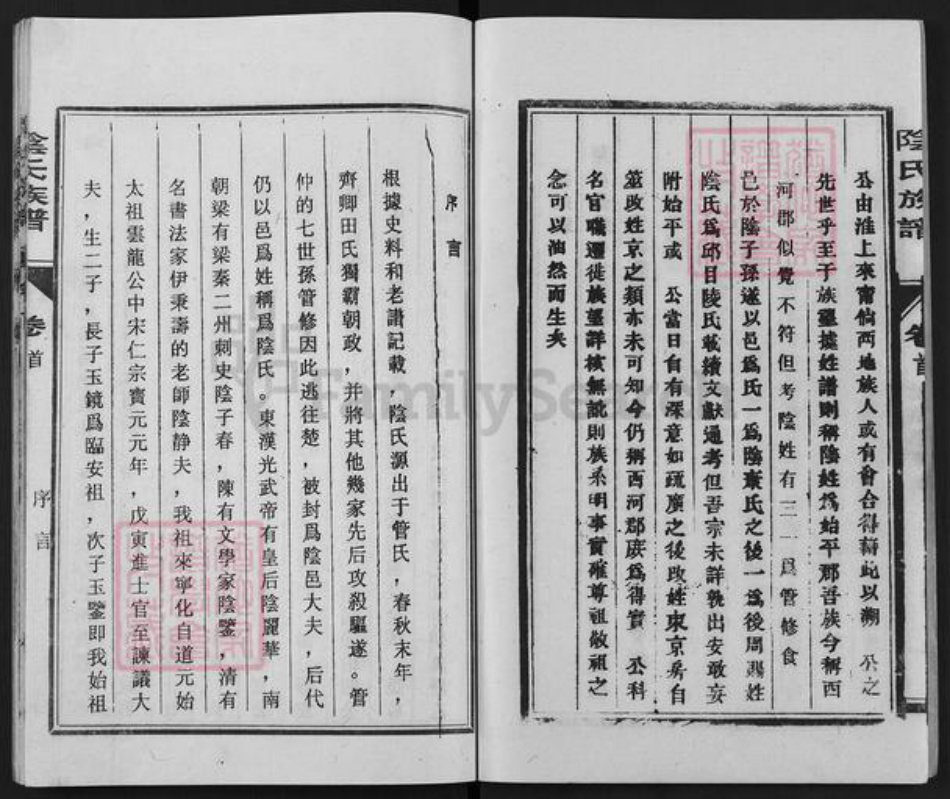 陰氏族譜
卷首
公由淮上來甯倘兩地族人或有會合得藉此以溯 公之
先世乎至于族望據姓譜則稱陰姓爲始平郡吾族今稱西
河郡似覺不符但考陰姓有三一爲管修食
邑於陰子孫遂以邑爲氏一爲陰康氏之後一爲後周賜姓
陰氏爲邱目陵氏載續文獻通考但吾宗未詳孰出安敢妄
附始平或 公當日自有深意如疏廣之後改姓束京房自
筮改姓京之類亦未可知今仍稱西河郡庶爲得實 公科
名官職遷徙族望詳核無訛則族系明事實確尊祖敬祖之
念可以油然而生矣
序言
根據史料和老譜記載 陰氏源出于管氏，春秋末年，
齊卿田氏獨霸朝政，并將其他幾家先后攻殺驅逐。管
仲的七世孫管修因此逃往楚，被封爲陰邑大夫，后代
仍以邑爲姓稱爲陰氏。東漢光武帝有皇后陰麗華，南
朝梁有梁秦二州刺史陰子春，陳有文學家陰鏗，清有
名書法家伊秉壽的老師陰静夫，我祖來寧化自道元始
太祖雲龍公中宋仁宗寶元元年，戊寅進士官至諫議大
夫，生二子，長子玉鏡爲臨安祖，次子玉鑒即我始祖
陰氏族譜
卷首
序言
FamilySearch